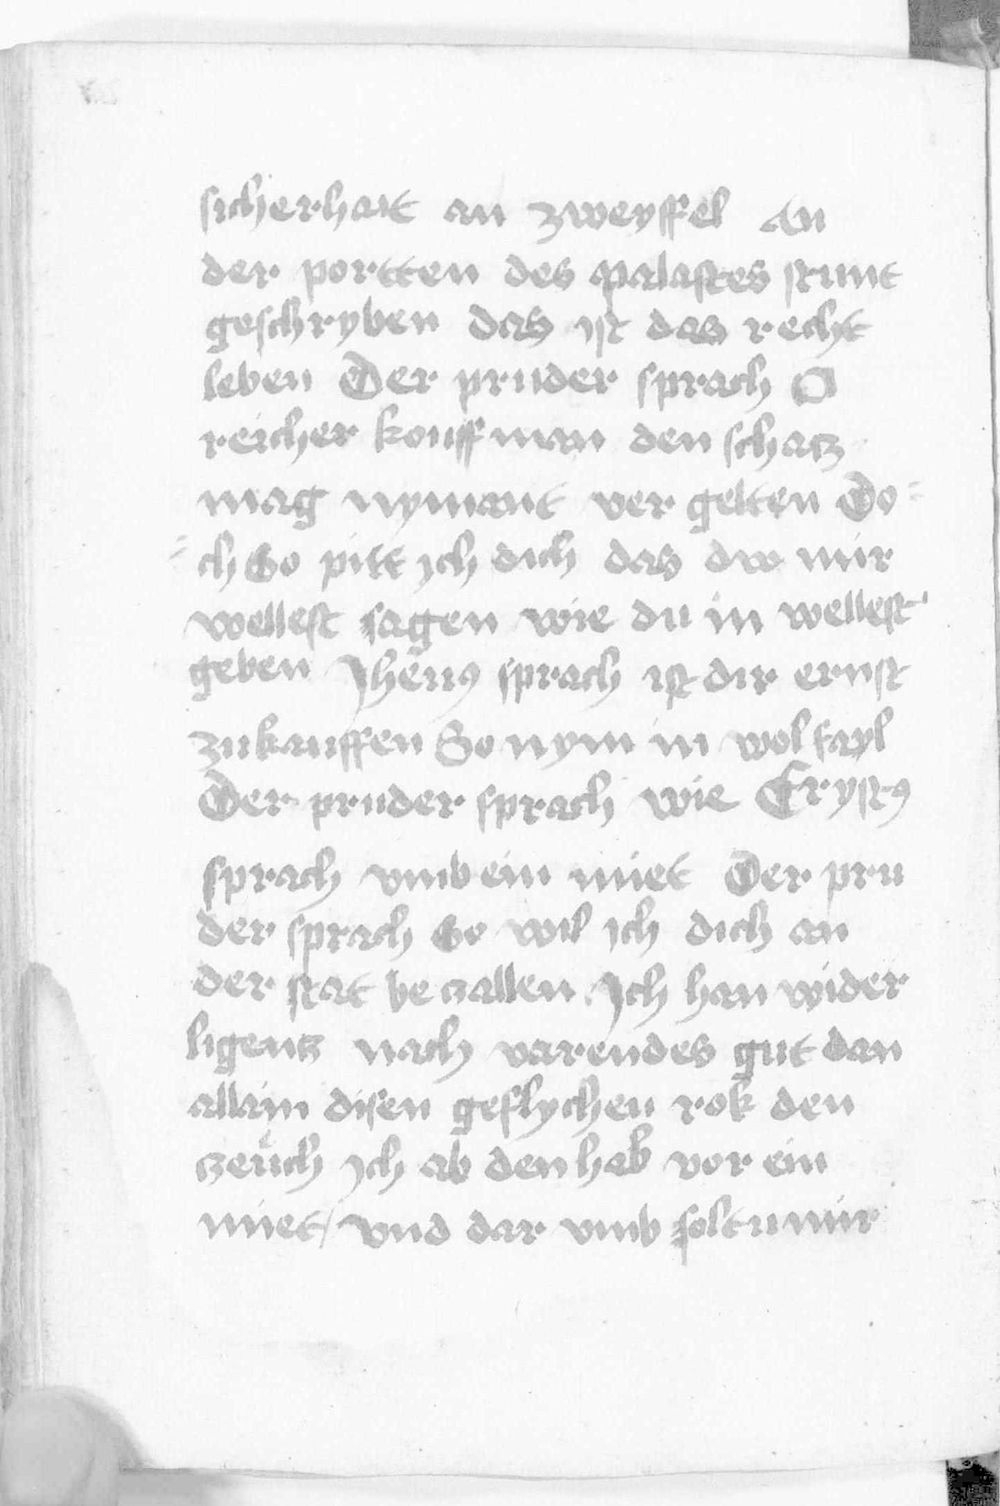 sicherhait an zweyffel An
der portten des palastes stunt
geschryben das ist das recht
leben Der pruder sprach O
reicher kouffman den schatz
mag nymant ver gelten Do-
-ch So pitt ich dich das dw mir
wellest sagen wie du in wellest
geben Jhesus sprach ist dir ernst
zu kauffen So nym in wolfayl
Der pruder sprach wie Crystus
sprach vmb ein miet Der pru
der sprach So wil ich dich an
der stat beczallen Jch han wider
ligentz nach varendes gut dan
allain disen geflychen rok den
czeuch ich ab den hab vor ein
miet / vnd dar vmb soltu mir